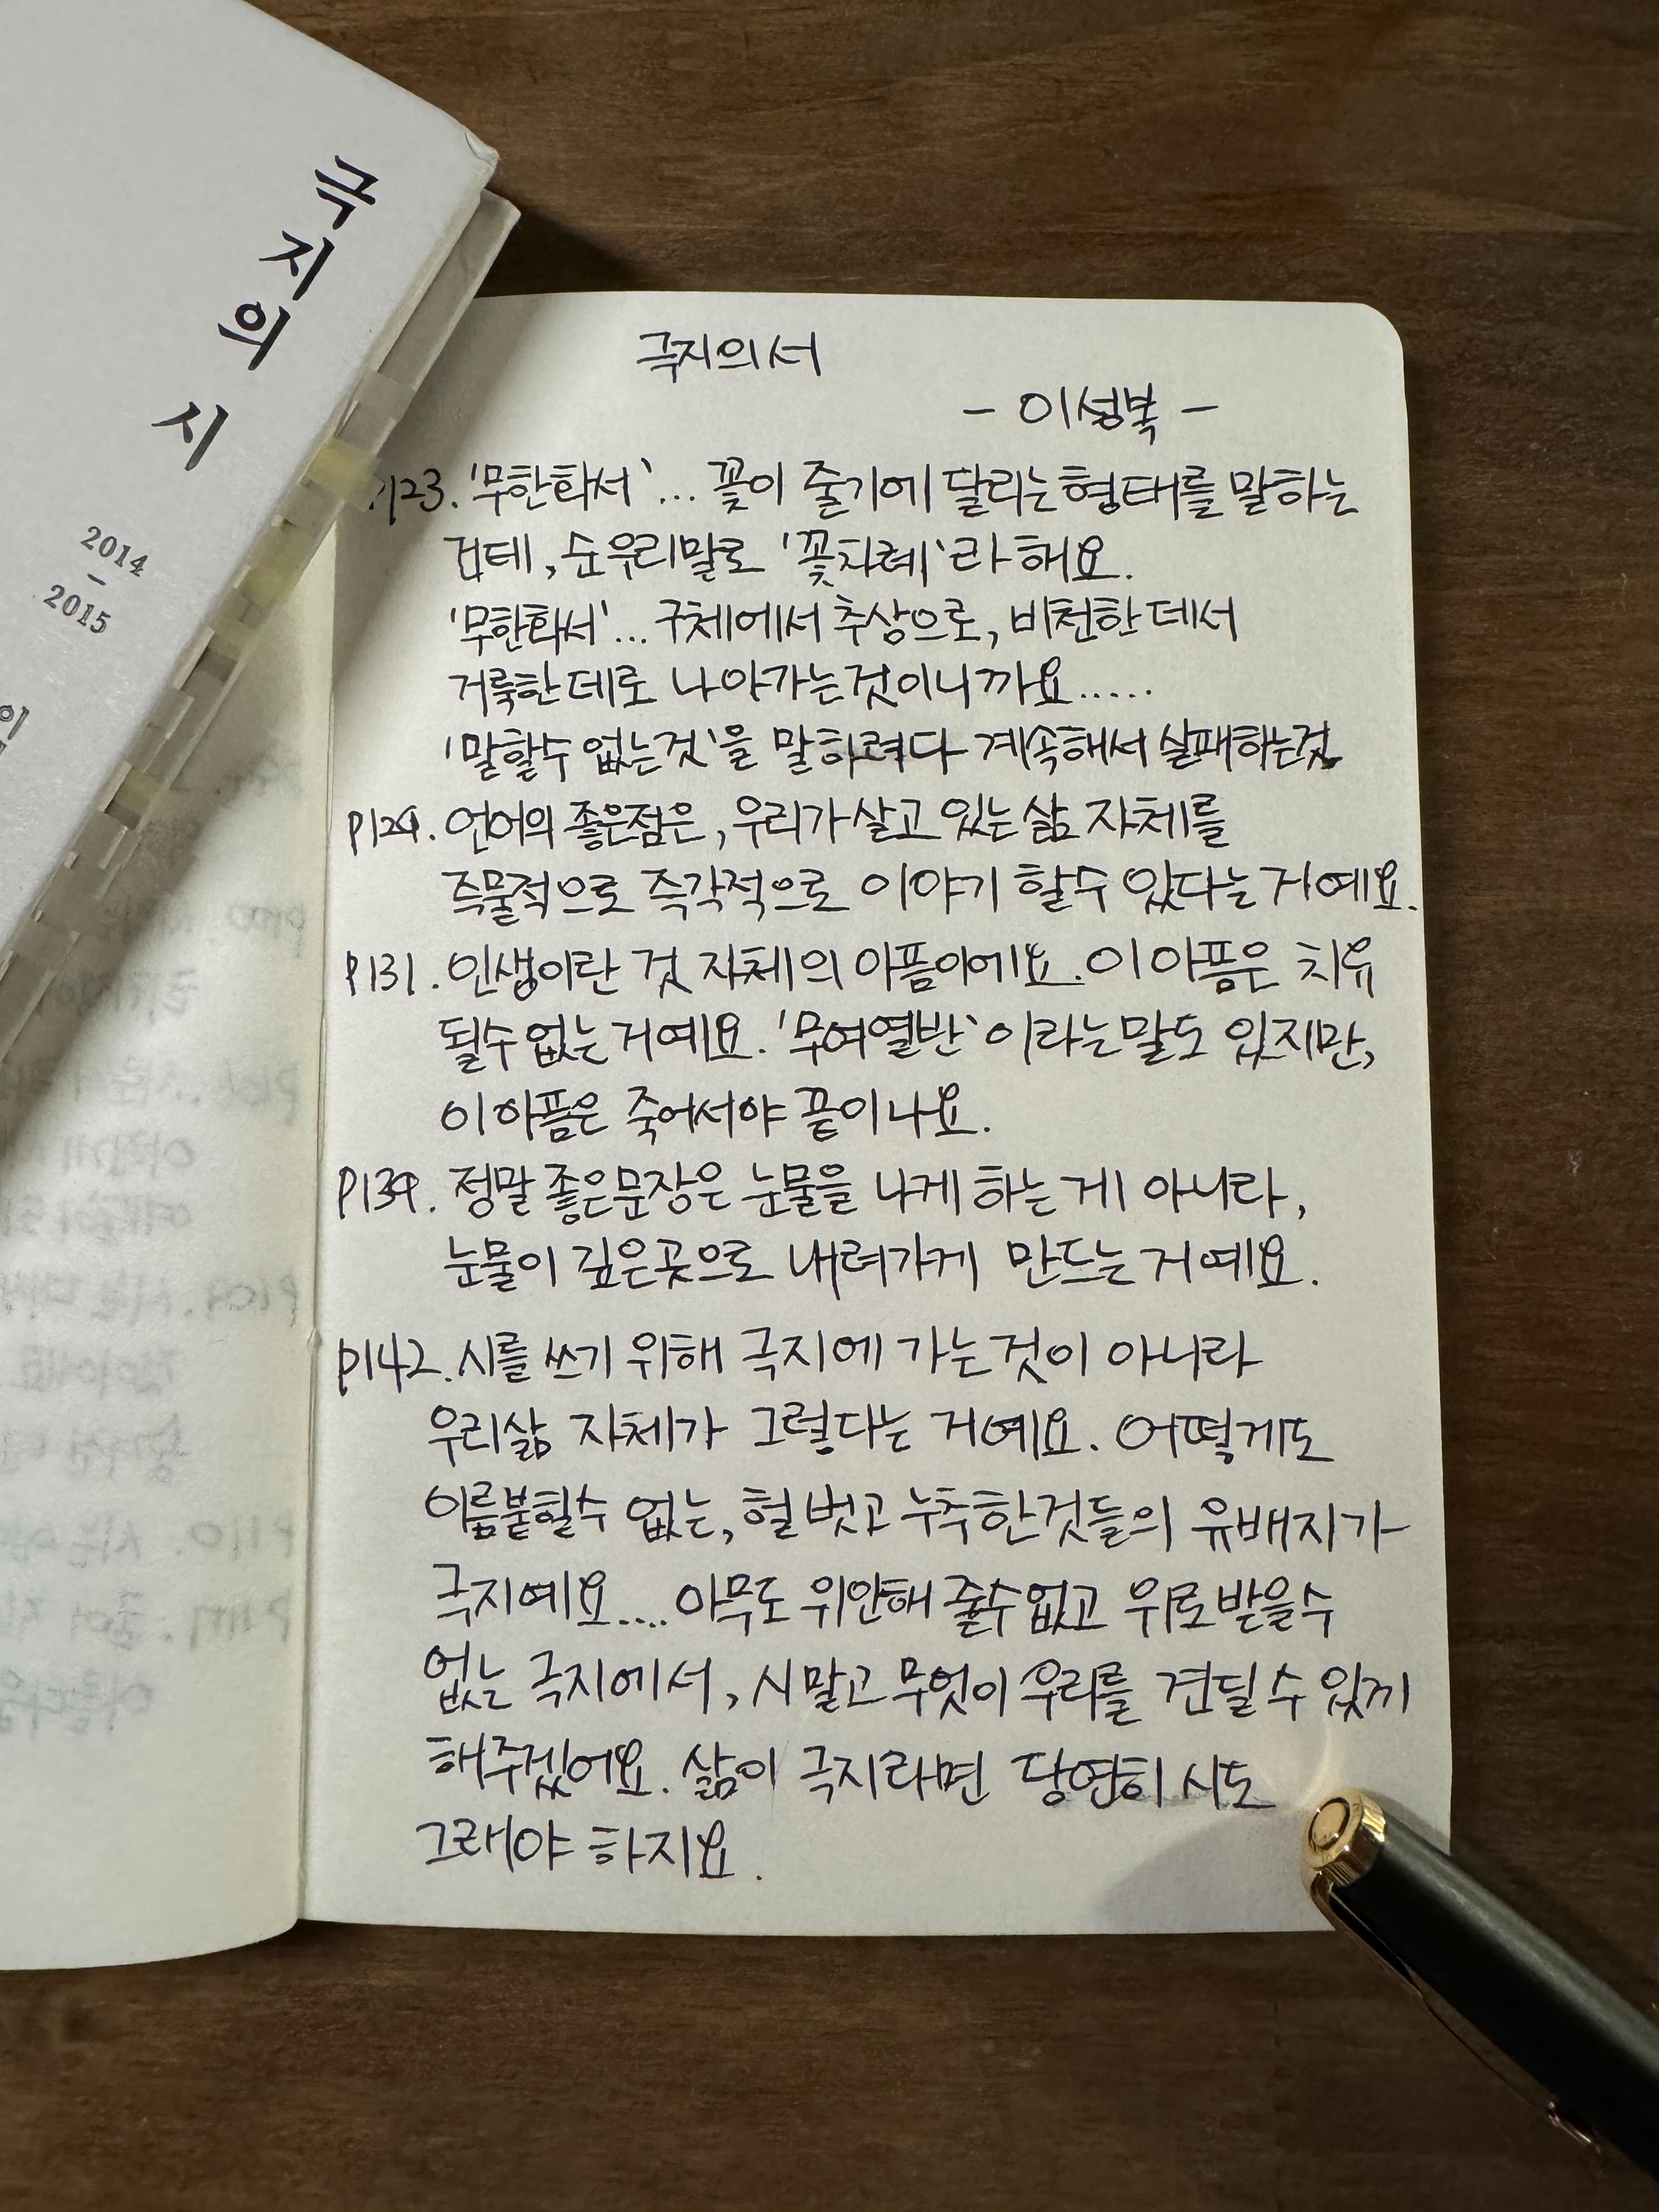 극지의 시
2014
–
2015
극지의 서
- 이성복 -
P123. '무한화서'... 꽃이 줄기에 달리는 형태를 말하는
건데, 순우리말로 '꽃차례'라 해요.
'무한화서'... 구체에서 추상으로, 비천한 데서
거룩한 데로 나아가는 것이니까요.....
'말할수 없는것'을 말하려다 계속해서 실패하는것
P129. 언어의 좋은점은, 우리가 살고 있는 삶 자체를
즉물적으로 즉각적으로 이야기 할수 있다는 거예요.
P131. 인생이란 것 자체의 아픔이에요. 이 아픔은 치유
될수 없는 거예요. '무여열반'이라는 말도 있지만,
이 아픔은 죽어서야 끝이나요.
P139. 정말 좋은 문장은 눈물을 나게 하는 게 아니라,
눈물이 깊은 곳으로 내려가게 만드는 거예요.
P142. 시를 쓰기 위해 극지에 가는 것이 아니라
우리삶 자체가 그렇다는 거예요. 어떻게도
이름붙힐수 없는, 헐벗고 누추한 것들의 유배지가
극지예요.... 아무도 위안해 줄수 없고 위로받을 수
없는 극지에서, 시 말고 무엇이 우리를 견딜 수 있게
해주겠어요. 삶이 극지라면 당연히 시도
그래야 하지요.